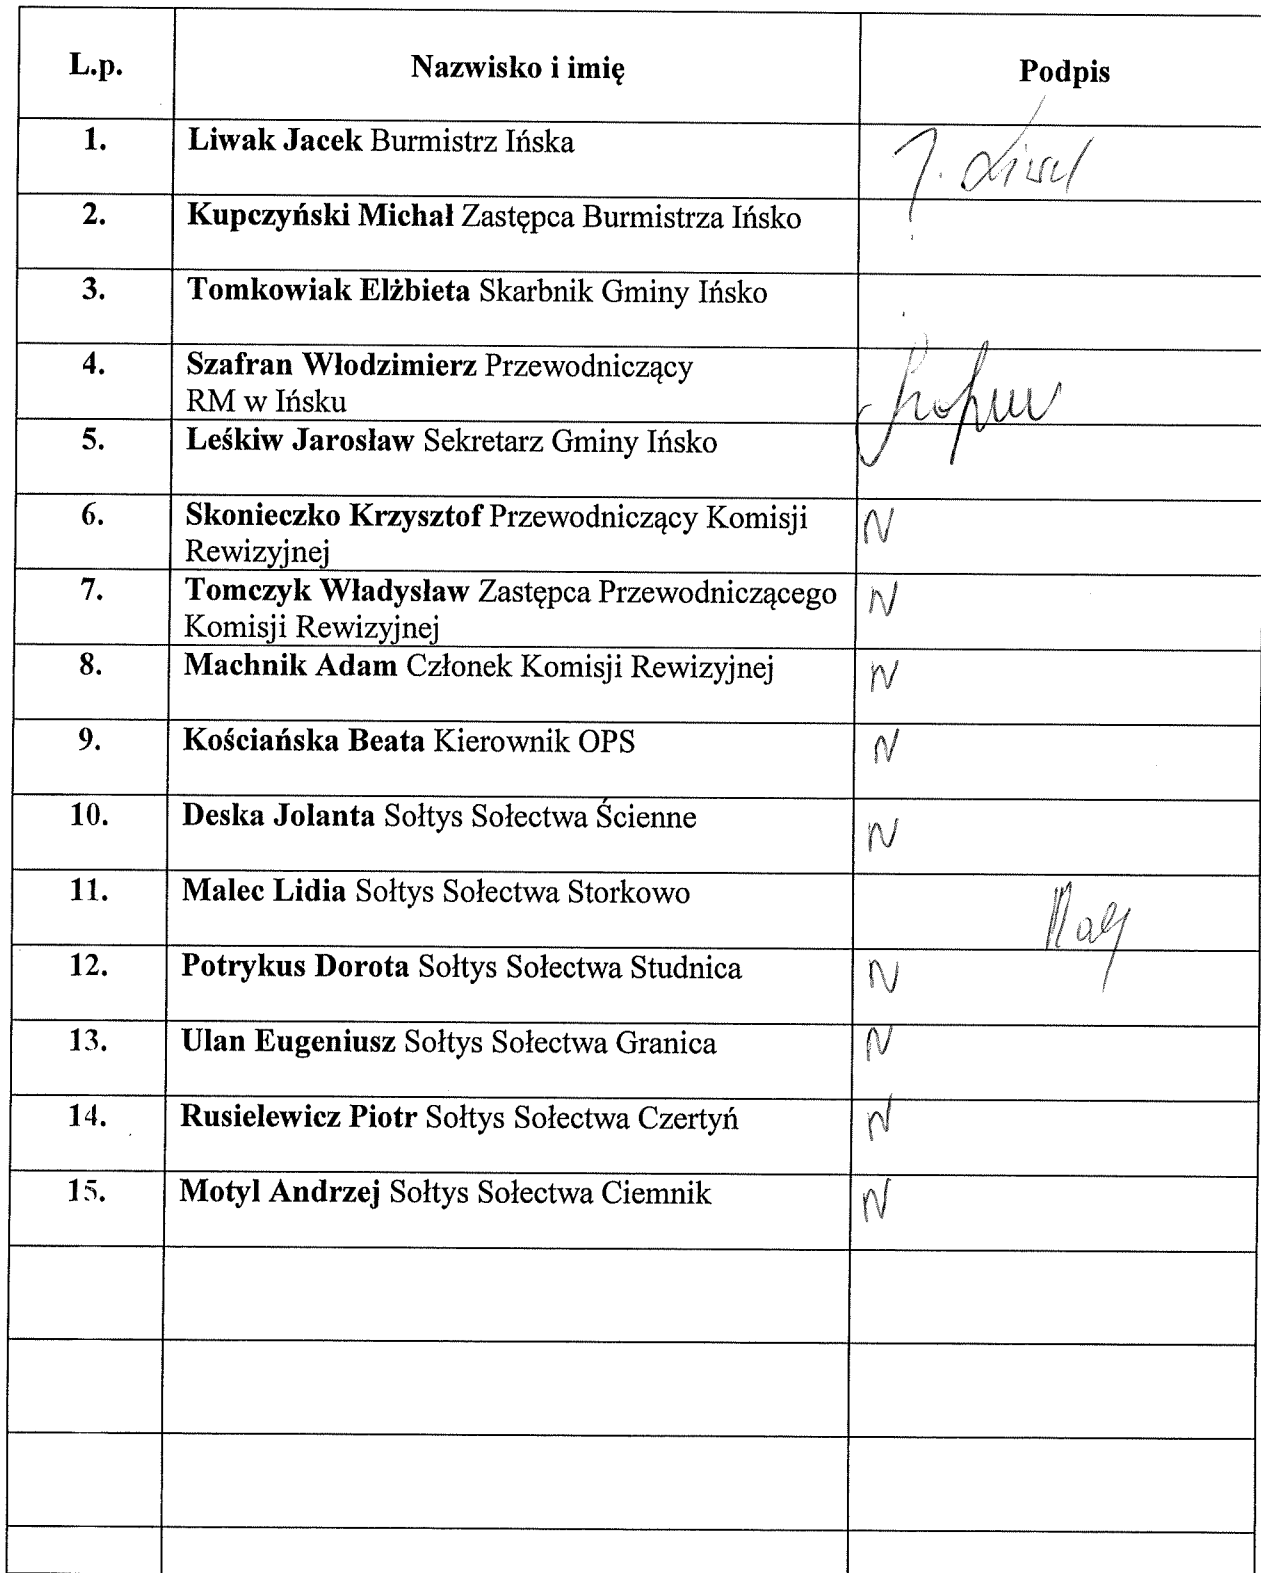 L.p. Nazwisko i imię Podpis
1. Liwak Jacek Burmistrz Ińska J. Liwak
2. Kupczyński Michał Zastępca Burmistrza Ińsko
3. Tomkowiak Elżbieta Skarbnik Gminy Ińsko
4. Szafran Włodzimierz Przewodniczący
RM w Ińsku
5. Leśkiw Jarosław Sekretarz Gminy Ińsko
6. Skonieczko Krzysztof Przewodniczący Komisji N
Rewizyjnej
7. Tomczyk Władysław Zastępca Przewodniczącego N
Komisji Rewizyjnej
8. Machnik Adam Członek Komisji Rewizyjnej N
9. Kościańska Beata Kierownik OPS N
10. Deska Jolanta Sołtys Sołectwa Ścienne N
11. Malec Lidia Sołtys Sołectwa Storkowo
12. Potrykus Dorota Sołtys Sołectwa Studnica N
13. Ulan Eugeniusz Sołtys Sołectwa Granica N
14. Rusielewicz Piotr Sołtys Sołectwa Czertyń N
15. Motyl Andrzej Sołtys Sołectwa Ciemnik N